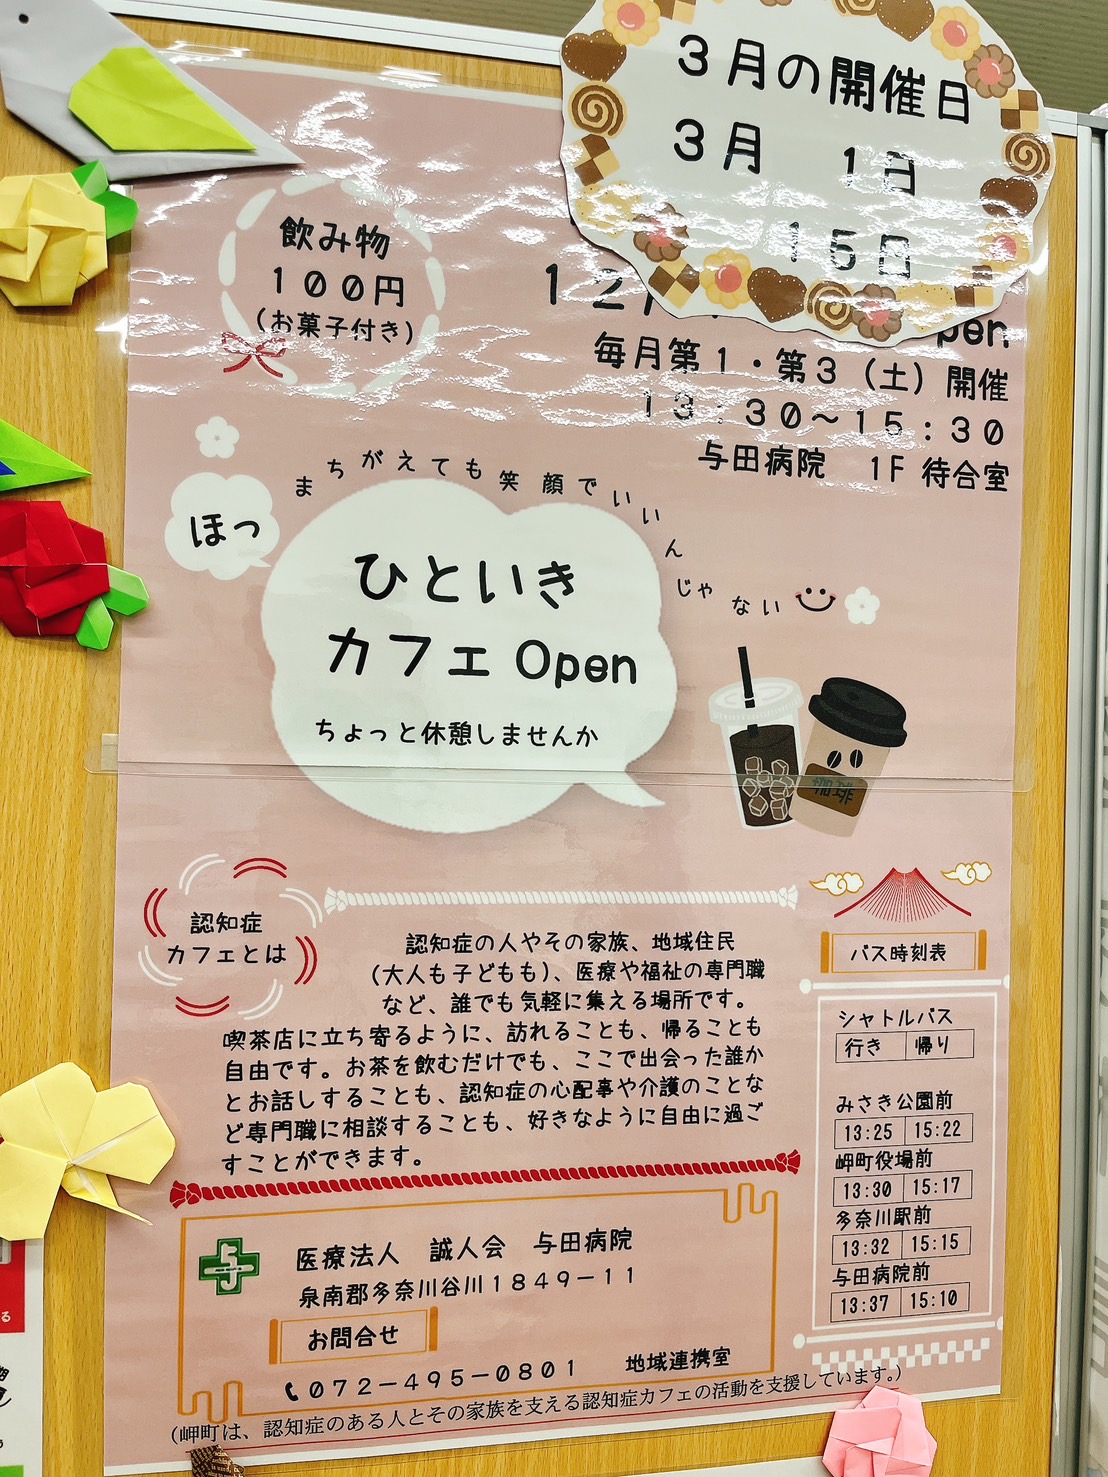 3月の開催日
3月 1日
15日
飲み物
100円
(お菓子付き)
12
pen
毎月第1・第3（土）開催
13：30～15：30
与田病院 1F 待合室
まちがえても笑顔でいいんじゃない
ほっ
ひといき
カフェ Open
ちょっと休憩しませんか
珈琲
認知症
カフェとは
認知症の人やその家族、地域住民
(大人も子どもも)、医療や福祉の専門職
など、誰でも気軽に集える場所です。
喫茶店に立ち寄るように、訪れることも、帰ることも
自由です。お茶を飲むだけでも、ここで出会った誰か
とお話しすることも、認知症の心配事や介護のことな
ど専門職に相談することも、好きなように自由に過ご
すことができます。
バス時刻表
シャトルバス
行き 帰り
みさき公園前
13:25 15:22
岬町役場前
13:30 15:17
多奈川駅前
13:32 15:15
与田病院前
13:37 15:10
医療法人 誠人会 与田病院
泉南郡多奈川谷川1849－11
お問合せ
072－495－0801 地域連携室
(岬町は、認知症のある人とその家族を支える認知症カフェの活動を支援しています。)